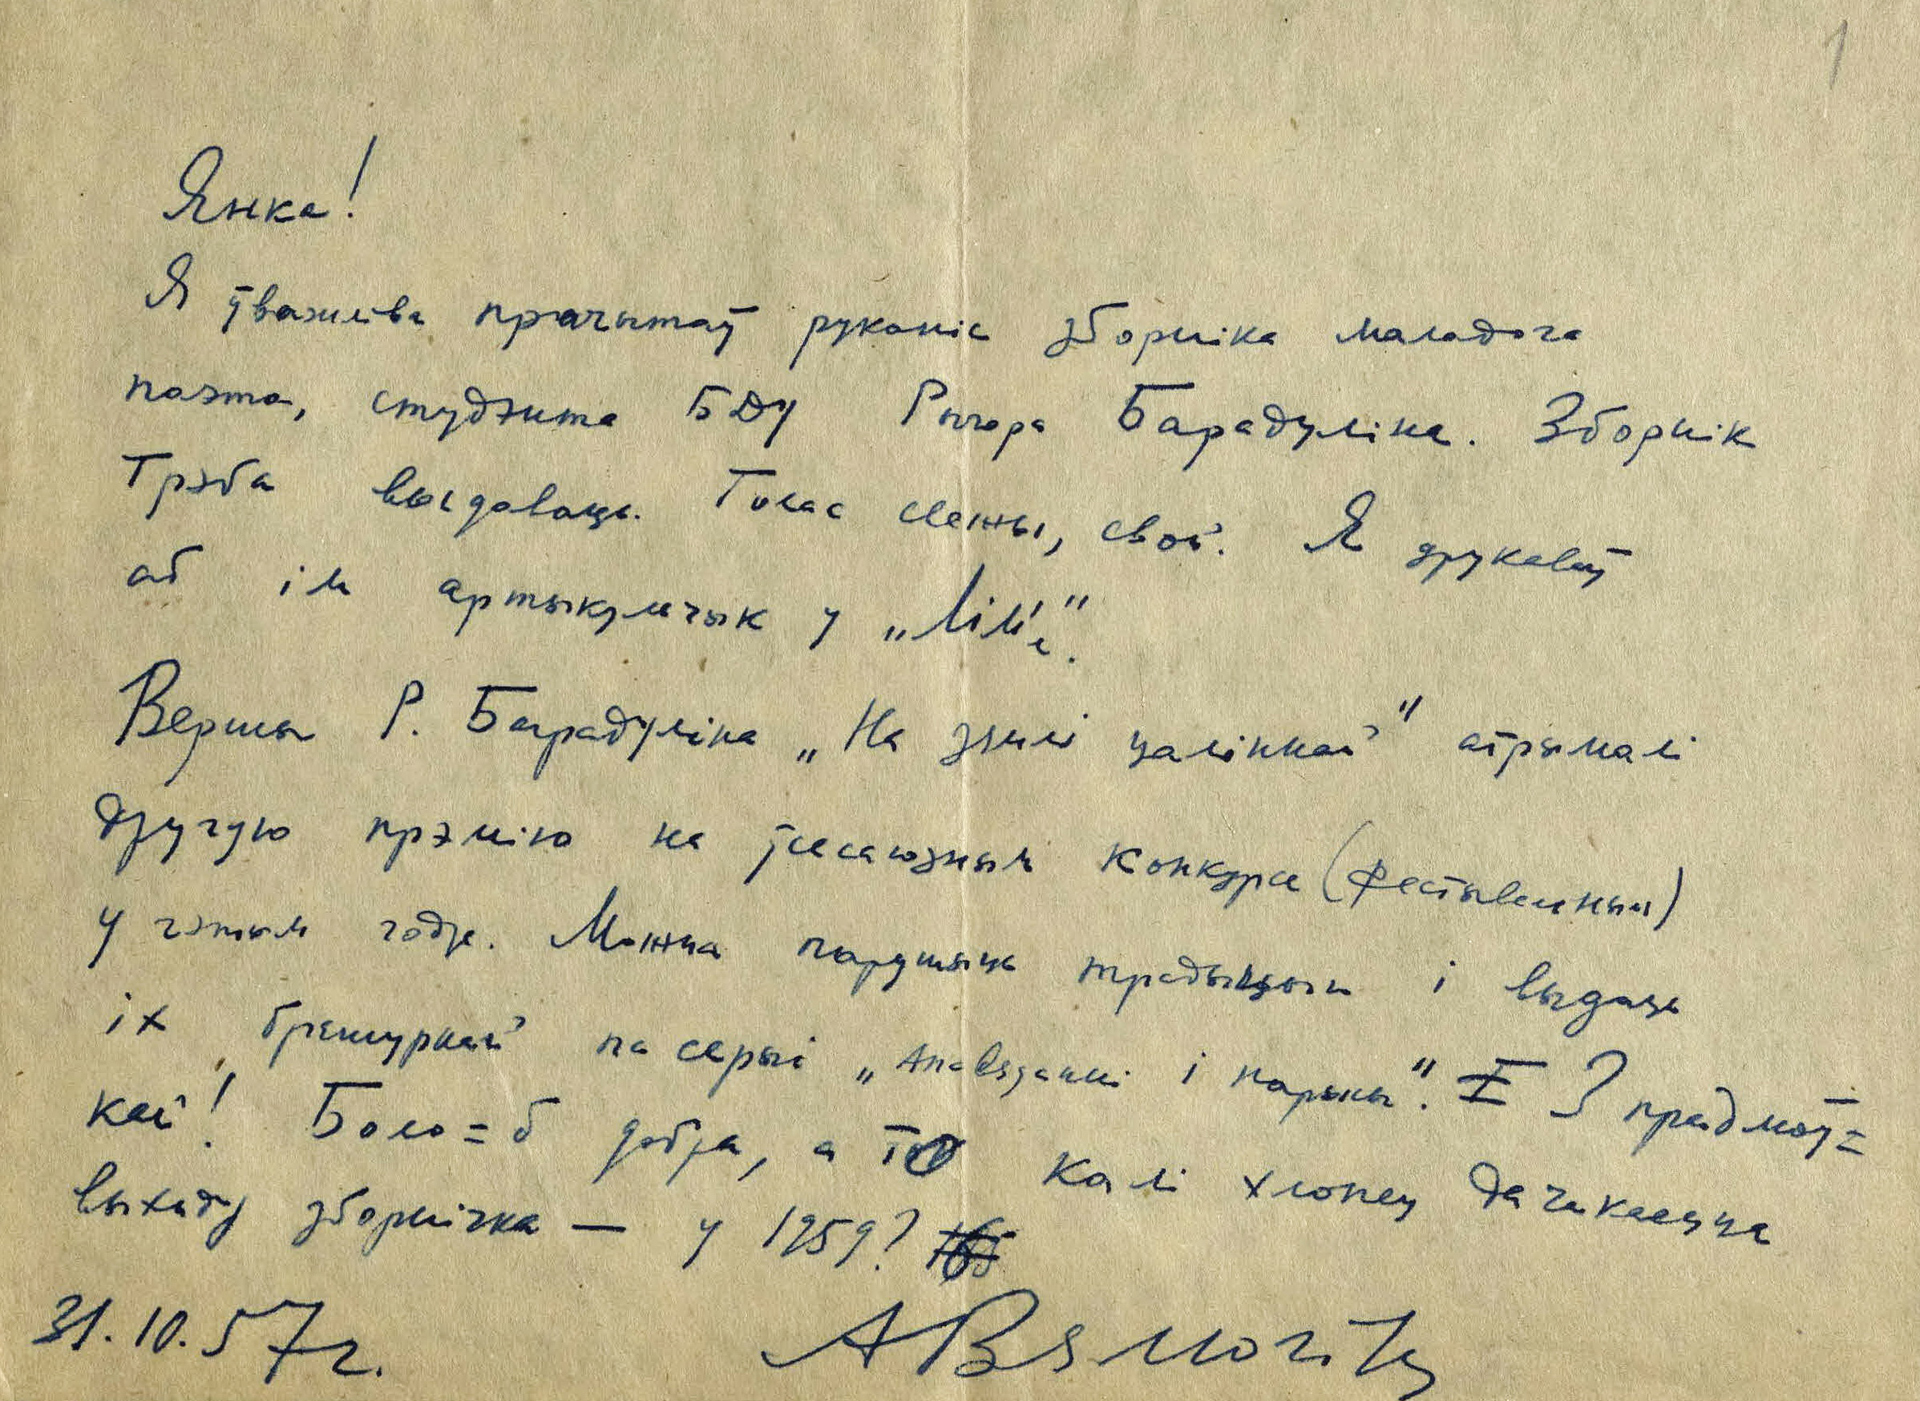 1
Янка!
Я ўважліва прачытаў рукапіс зборніка маладога
паэта, студэнта БДУ Рыгора Барадуліна. Зборнік
трэба выдаваць. Голас свежы, свой. Я друкаваў
аб ім артыкульчык у „ЛіМ'е".
Вершы Р. Барадуліна „На зямлі цаліннай" атрымалі
другую прэмію на ўсесаюзным конкурсе (фестывальным)
у гэтым годзе. Можна парушыць традыцыі і выдаць
іх брашуркай па серыі „Апавяданні і нарысы". З прадмоў=
кай! Было=б добра, а то калі хлопец дачакаецца
выхаду зборнічка — у 1959?
31.10.57 г. АВялюгін